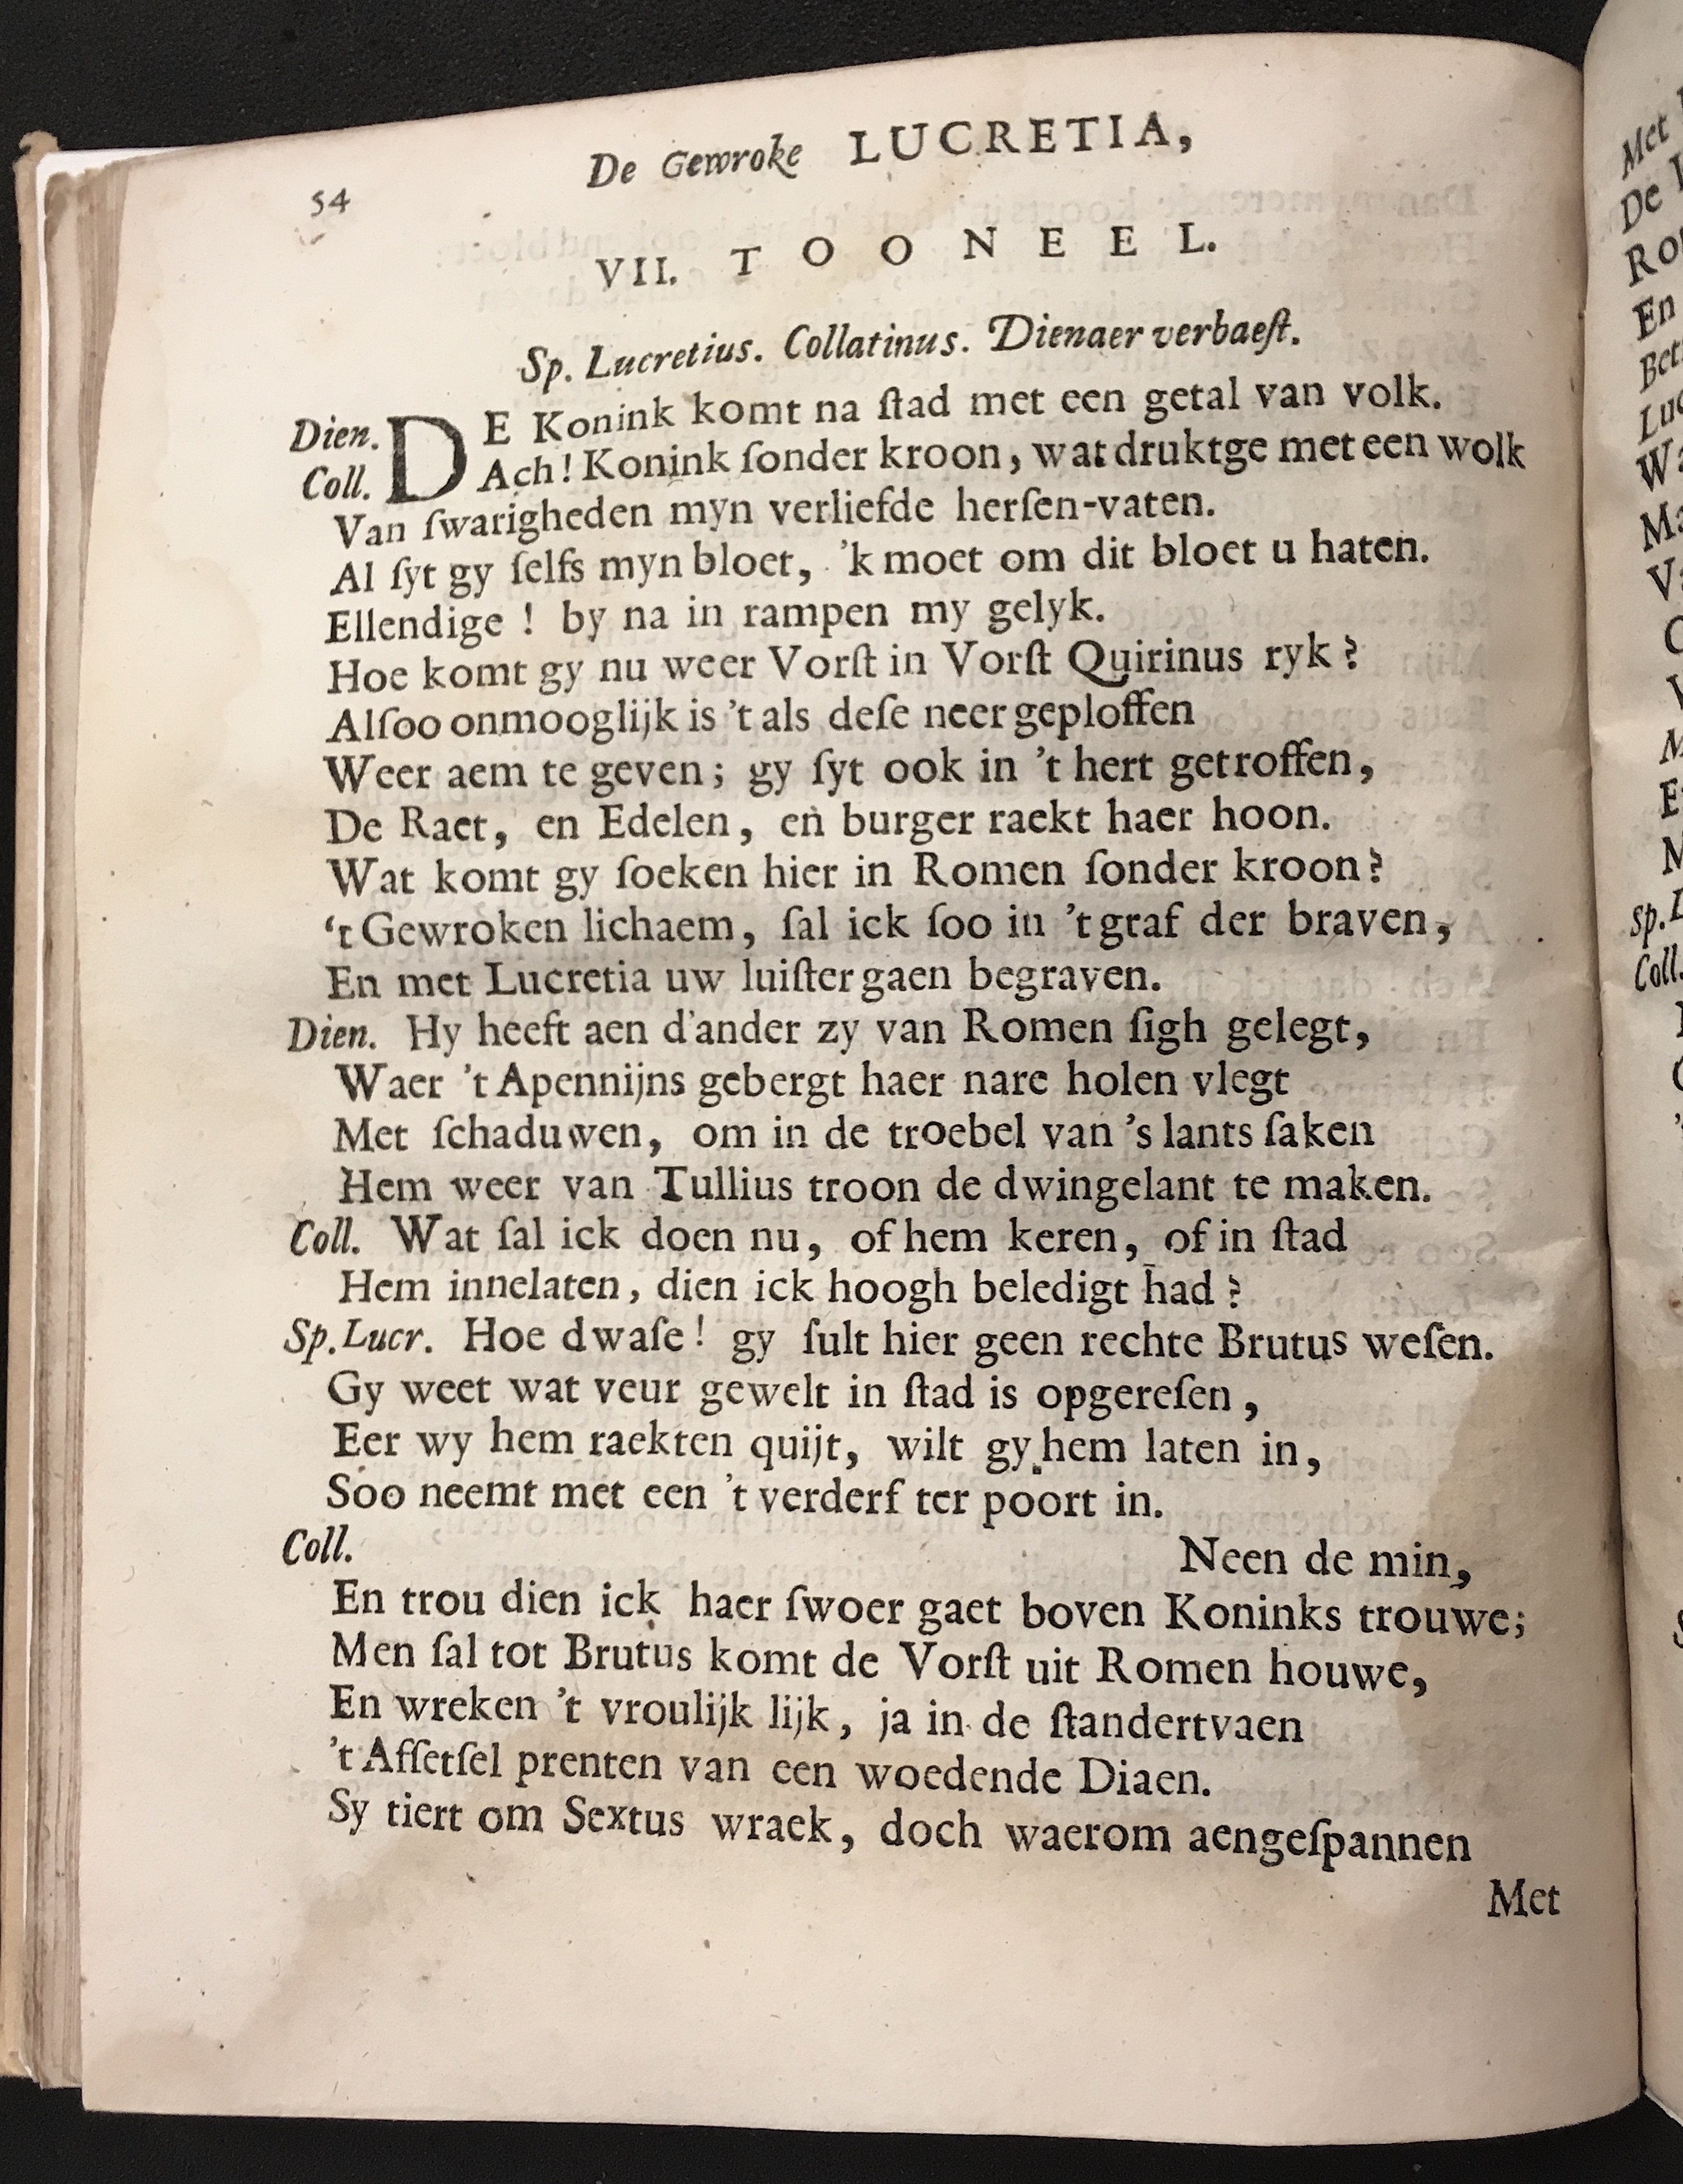 54
De Gewroke LUCRETIA,
VII. TOONEEL.
Sp. Lucretius. Collatinus. Dienaer verbaeſt.
Dien. DE Konink komt na ſtad met een getal van volk.
Coll. Ach! Konink ſonder kroon, wat druktge met een wolk
Van ſwarigheden myn verliefde herſen-vaten.
Al ſyt gy ſelfs myn bloet, 'k moet om dit bloet u haten.
Ellendige! by na in rampen my gelyk.
Hoe komt gy nu weer Vorſt in Vorſt Quirinus ryk?
Alſoo onmooglijk is 't als deſe neer geploffen
Weer aem te geven; gy ſyt ook in 't hert getroffen,
De Raet, en Edelen, en burger raekt haer hoon.
Wat komt gy ſoeken hier in Romen ſonder kroon?
't Gewroken lichaem, ſal ick ſoo in 't graf der braven,
En met Lucretia uw luiſter gaen begraven.
Dien. Hy heeft aen d'ander zy van Romen ſigh gelegt,
Waer 't Apennijns gebergt haer nare holen vlegt
Met ſchaduwen, om in de troebel van 's lants ſaken
Hem weer van Tullius troon de dwingelant te maken.
Coll. Wat ſal ick doen nu, of hem keren, of in ſtad
Hem innelaten, dien ick hoogh beledigt had?
Sp. Lucr. Hoe dwaſe! gy ſult hier geen rechte Brutus weſen.
Gy weet wat veur gewelt in ſtad is opgereſen,
Eer wy hem raekten quijt, wilt gy hem laten in,
Soo neemt met een 't verderf ter poort in.
Coll. Neen de min,
En trou dien ick haer ſwoer gaet boven Koninks trouwe;
Men ſal tot Brutus komt de Vorſt uit Romen houwe,
En wreken 't vroulijk lijk, ja in de ſtandertvaen
't Afſetſel prenten van een woedende Diaen.
Sy tiert om Sextus wraek, doch waerom aengeſpannen
Met
Met
De
En
Sp.
Coll.